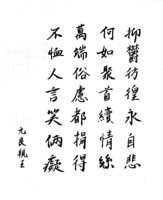 抑鬱彷徨永自悲
何如聚首續情絲
萬端俗慮都捐得
不恤人言笑倆癡
元良親王